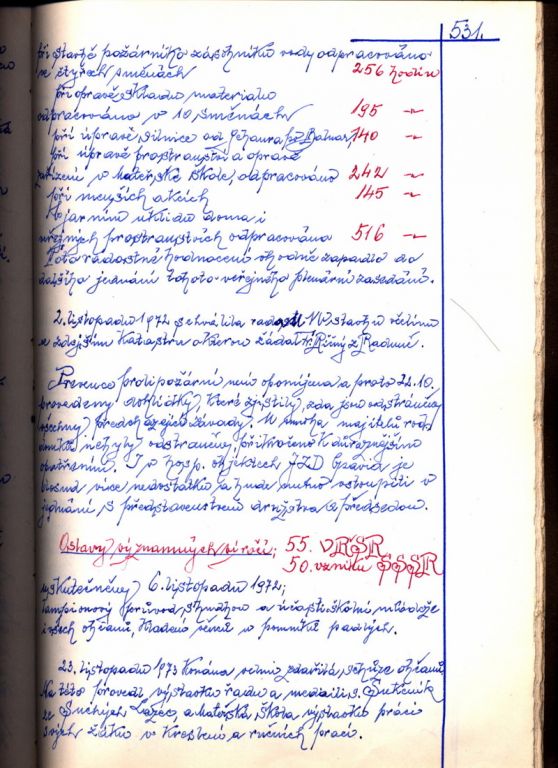 531.
při stavbě požárního zásobníku vody odpracováno
ve čtyřech směnách 256 hodin
při opravě skladu materialu
odpracováno v 10 směnách 195 -"-
při úpravě silnice od Gebaura 140 -"-
při úpravě prostranství a opravě
zařízení v Mateřské škole, odpracováno 242 -"-
při menších akcích 145 -"-
jarním úklidu doma i
veřejných prostranstvích odpracováno 516 -"-
Toto radostné hodnocení vhodně zapadlo do
dalšího jednání tohoto veřejného plenární zasedání.
2. listopadu 1972 schválila rada MNV stavbu včelínu
ve zdejším katastru o kterou žádal Říný z Raduně.
Prevence protipožární není opomíjena a proto 22.10.
provedeny dohlídky, které zjistily, zda jsou odstraněny
všechny předcházející závady. U mnoha majitelů rod.
domků nebyly odstraněny, přikročeno k důraznějšímu
opatřením. I v hosp. objektech JZD Opavia je
dosud více nedostatků a bude nutno vstoupiti v
jednání s představenstvem družstva a předsedou.
Oslavy významných výročí; 55. VŘSR
50. vzniku SSSR
uskutečněny 6. listopadu 1972;
lampionový průvod, s hudbou a účastí školní mládeže
i všech občanů, kladení věnců u pomníku padlých.
23. listopadu 1973 konána velmi zdařilá, schůze občanů
Na této provedl výstavku řádů a medailí s.
ze Suchých Lazec, a Mateřská škola výstavku prací
svých žáků v kreslení a ručních prací.